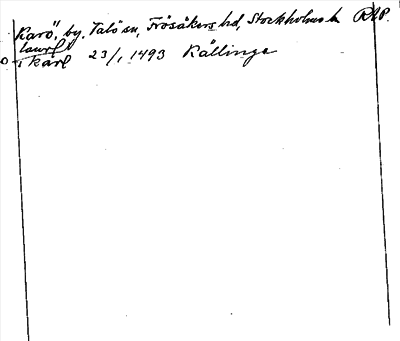 Karö, by, Talö sn, Frösåkers hd, Stockholms l. RAP.
laurſ
i Karl 23/1 1493 Källinge